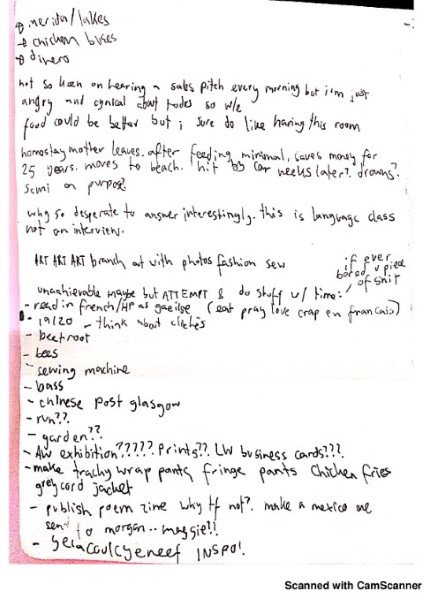 merida/lakes
chicken buses
dinero
not so keen on hearing a sales pitch every morning but i'm just
angry and cynical about dudes so w/e
food could be better but i sure do like having this room
homestay mother leaves. after feeding minimal, saves money for
25 years. moves to beach. hit by car weeks later?. drowns?.
semi on purpose?
why so desperate to answer interestingly. this is language class
not an interview.
ART ART ART branch out with photos fashion sew
if ever
bored u piece
of shit
unachievable maybe but ATTEMPT & do stuff w/ time:
- read in french/HP as gaeilge (eat pray love crap en francais)
- 19/20 - think about clichés
- beetroot
- bees
- sewing machine
- bass
- chinese post glasgow
- run??
- garden??
- AW exhibition????? Prints?? LW business cards???
- make trachy wrap pants, fringe pants chicken fries
grey cord jacket
- publish poem zine why tf not?. make a mexico one
send to morgan.. maggie!!
- INSPO!
Scanned with CamScanner